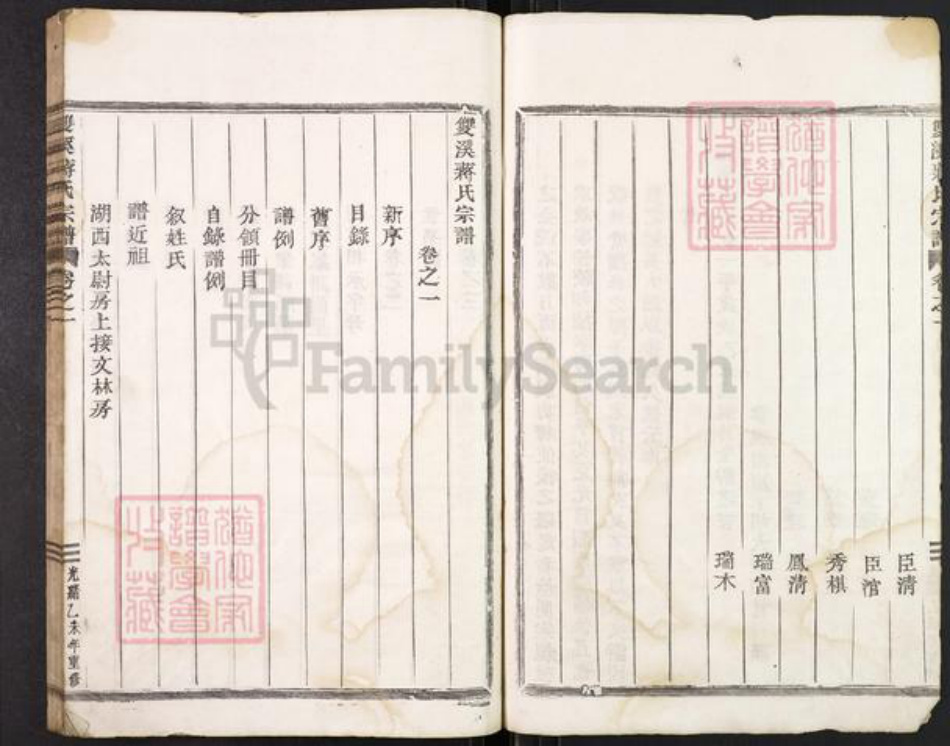 臣清
臣涫
秀棋
鳳清
瑞富
瑞木
雙溪蔣氏宗譜
卷之一
新序
目錄
舊序
譜例
分領冊目
自錄譜例
叙姓氏
譜近祖
湖西太尉房上接文林房
雙溪蔣氏宗譜
卷之一
光緒乙未年重修
譜學會
收藏
FamilySearch